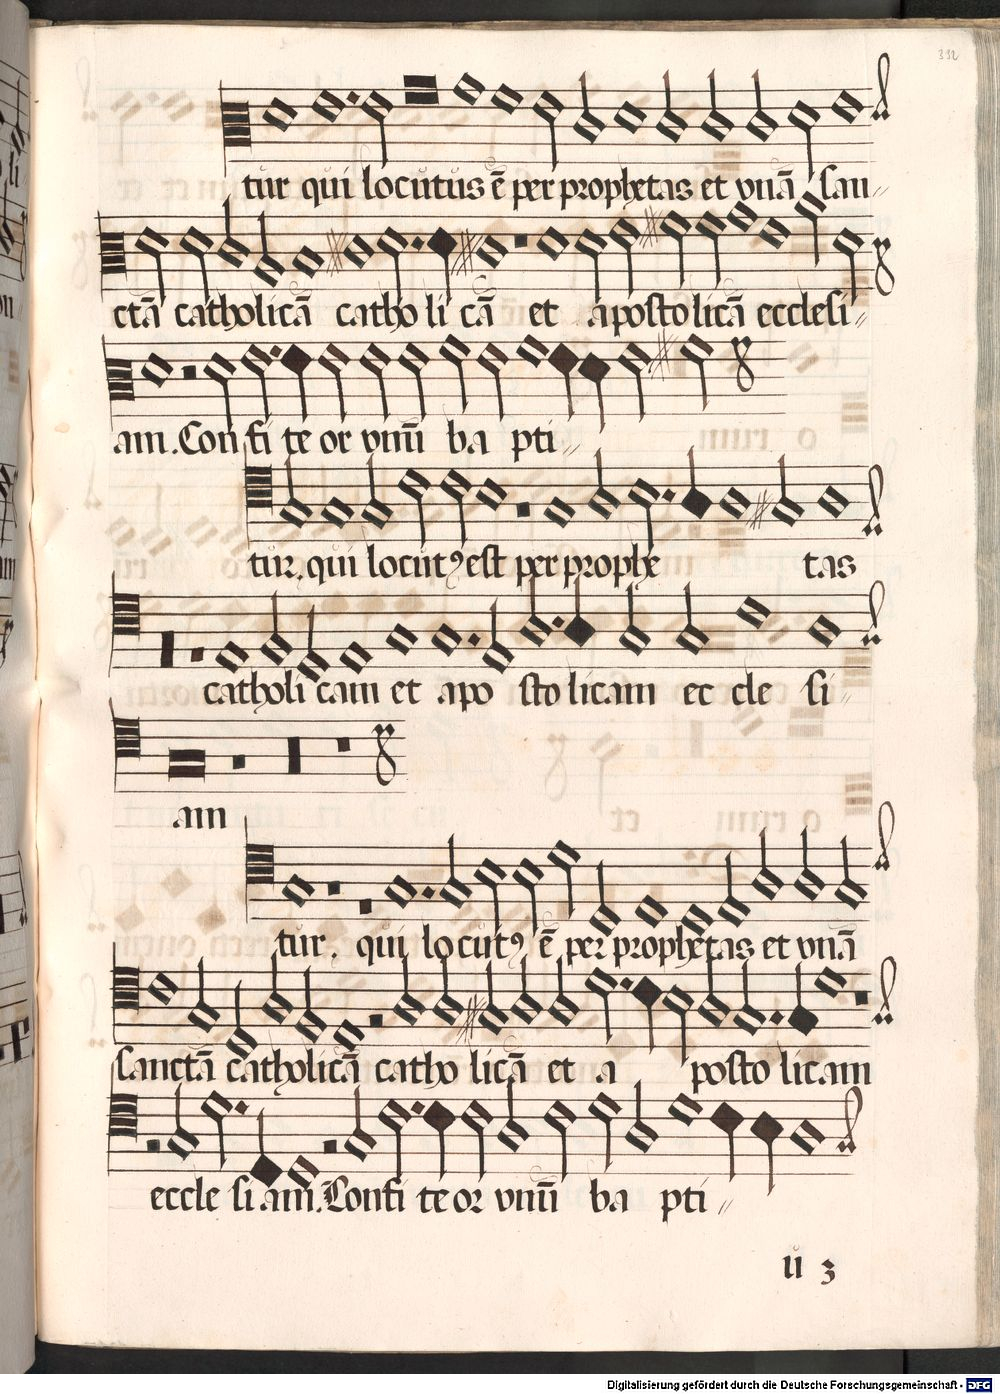 332
tur qui locutus ē per prophetas et vnā san
ctā catholicā catho li cā et apostolicā ecclesi
am. Confi te or vnū ba pti
tur. qui locutꝰ est per prophe tas
catholi cam et apo sto licam ec cle si
am
tur. qui locutꝰ ē per prophetas et vnā
sanctā catholicā catho licā et a posto licam
eccle si am. Confi te or vnū ba pti
ů 3
Digitalisierung gefördert durch die Deutsche Forschungsgemeinschaft - DFG